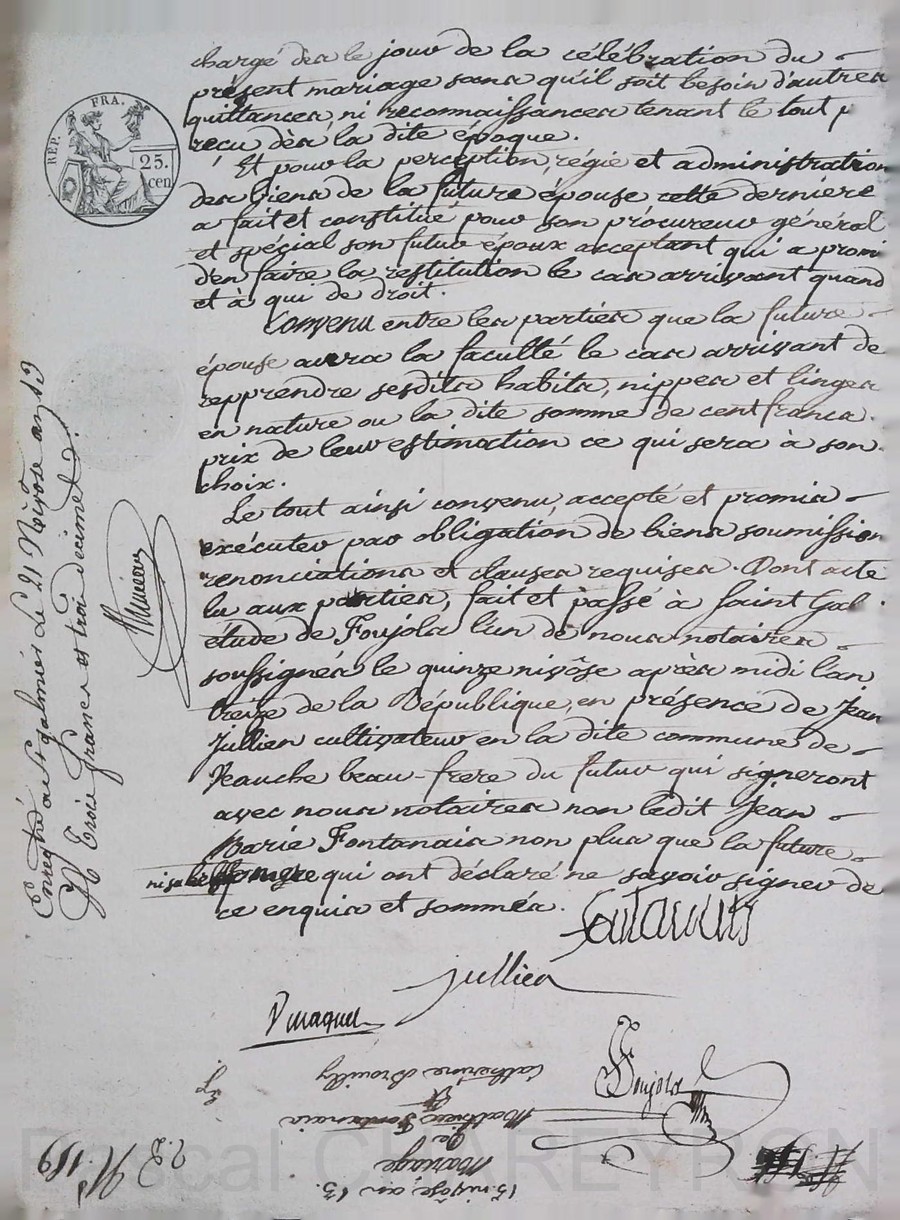 REP. FRA.
25.
cen
chargé dès le jour de la célébration du
présent mariage sans qu'il soit besoin d'autres
quittances, ni reconnaissances tenant le tout p
recu dès la dite époque.
Et pour la perception, régie et administration
des biens de la future épouse cette derniere
a fait et constitué pour son procureur général
et spécial son futur époux acceptant qui a promi
d'en faire la restitution le cas arrivant quand
et à qui de droit.
Convenu entre les parties que la future
épouse aura la faculté le cas arrivant de
repprendre sesdits habits, nippes et linges
en nature ou la dite somme de cent francs
prix de leur estimation ce qui sera à son
choix.
Le tout ainsi convenu, accepté et promis
exécuter par obligation de biens soumission
renonciations et clauses requises. Dont acte
lu aux parties, fait et passé à Saint Gal
étude de Foujols l'un de nous notaires
soussignés le quinze nivôse après midi l'an
treize de la République, en présence de Jean
Jullien cultivateur en la dite commune de
Veauche beau-frere du futur qui signeront
avec nous notaires non ledit Jean
Marie Fontanais non plus que la future
qui ont déclaré ne savoir signer de
ce enquis et sommés.
Jullien
Foujols
Enregtré au St galmier le 21 Nivôse an 13
R trois francs et trois décimes
15. nivôse, an 13.
Mariage
de
Mathieu Fontanais
et
Catherine Brouilly
N. 189
Pascal CHAREYRON